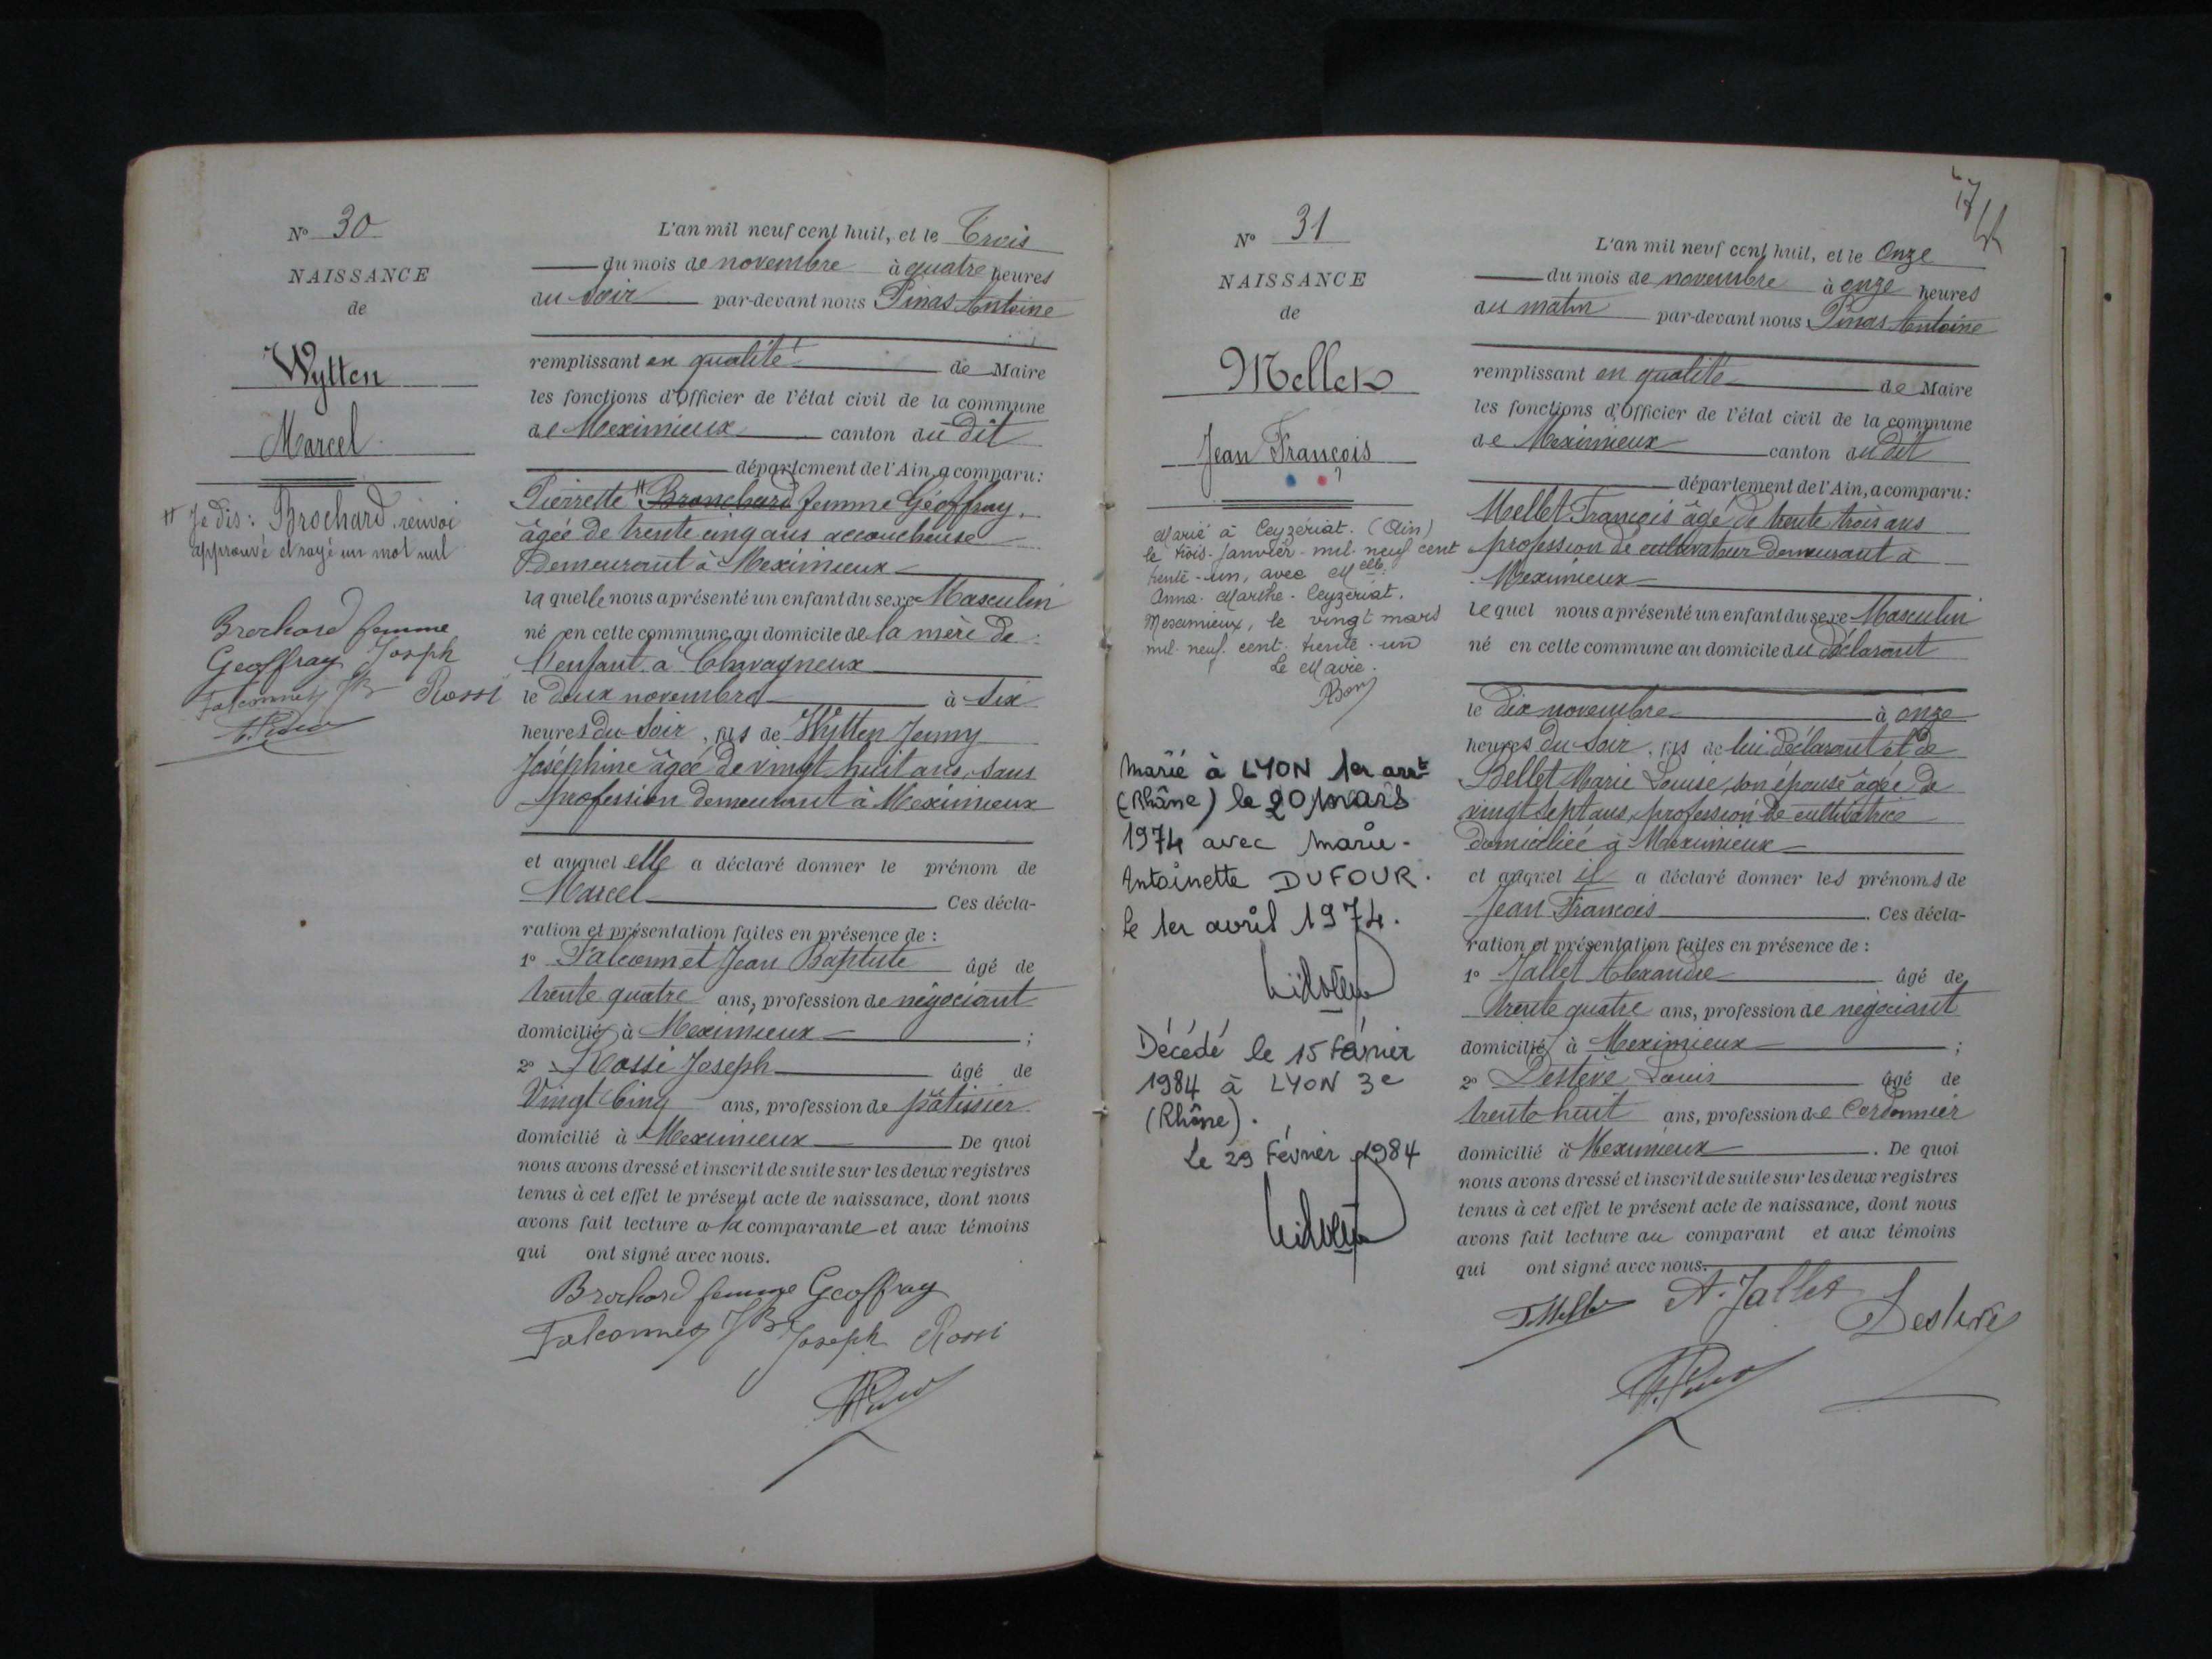 N° 30
NAISSANCE
de
Wytten
Marcel
# Je dis: Brochard, renvoi
approuvé et rayé un mot nul
Brochard femme
Geoffray Joseph
Falconnet JB Rossi
L'an mil neuf cent huit, et le Trois
du mois de novembre à quatre heures
du soir par-devant nous Pinas Antoine
remplissant en qualité de Maire
les fonctions d'Officier de l'état civil de la commune
de Meximieux canton du dit
département de l'Ain, a comparu:
Pierrette # Bronchard femme Géoffray,
âgée de trente cinq ans accoucheuse
Demeurant à Meximieux
la quelle nous a présenté un enfant du sexe Masculin
né en cette commune au domicile de la mère de
l'enfant à Chavagneux
le deux novembre à six
heures du Soir, fils de Wytten Jenny
Joséphine âgée de vingt huit ans, sans
profession demeurant à Meximieux
et auquel elle a déclaré donner le prénom de
Marcel Ces décla-
ration et présentation faites en présence de :
1° Falconnet Jean Baptiste âgé de
trente quatre ans, profession de négociant
domicilié à Meximieux ;
2° Rossi Joseph âgé de
Vingt Cinq ans, profession de pâtissier
domicilié à Meximieux De quoi
nous avons dressé et inscrit de suite sur les deux registres
tenus à cet effet le présent acte de naissance, dont nous
avons fait lecture a la comparante et aux témoins
qui ont signé avec nous.
Brochard femme Geoffray
Falconnet JB Joseph Rossi
N° 31
NAISSANCE
de
Mellet
Jean François
Marié à Ceyzériat. (Ain)
le trois-Janvier-mil-neuf cent
trente-un, avec Melle
Anna-Marthe-Ceyzériat.
Meximieux, le vingt mars
mil-neuf-cent-trente-un
Le Maire.
Marié à LYON 1er arrt
(Rhône) le 20 mars
1974 avec Marie-
Antoinette DUFOUR.
le 1er avril 1974.
Décédé le 15 Février
1984 à LYON 3e
(Rhône).
Le 29 Février 1984
L'an mil neuf cent huit, et le Onze
du mois de novembre à onze heures
du matin par-devant nous Pinas Antoine
remplissant en qualité de Maire
les fonctions d'Officier de l'état civil de la commune
de Meximieux canton du dit
département de l'Ain, a comparu:
Mellet François âgé de trente trois ans
profession de cultivateur demeurant à
Meximieux
le quel nous a présenté un enfant du sexe Masculin
né en cette commune au domicile du déclarant
le dix novembre à onze
heures du soir, fils de lui déclarant et de
Bellet Marie Louise, son épouse âgée de
vingt sept ans, profession de cultivatrice
domiciliée à Meximieux
et auquel il a déclaré donner les prénoms de
Jean François. Ces décla-
ration et présentation faites en présence de :
1° Jallet Alexandre âgé de
trente quatre ans, profession de négociant
domicilié à Meximieux ;
2° Destève Louis âgé de
trente huit ans, profession de Cordonnier
domicilié à Meximieux. De quoi
nous avons dressé et inscrit de suite sur les deux registres
tenus à cet effet le présent acte de naissance, dont nous
avons fait lecture au comparant et aux témoins
qui ont signé avec nous.
A. Jallet